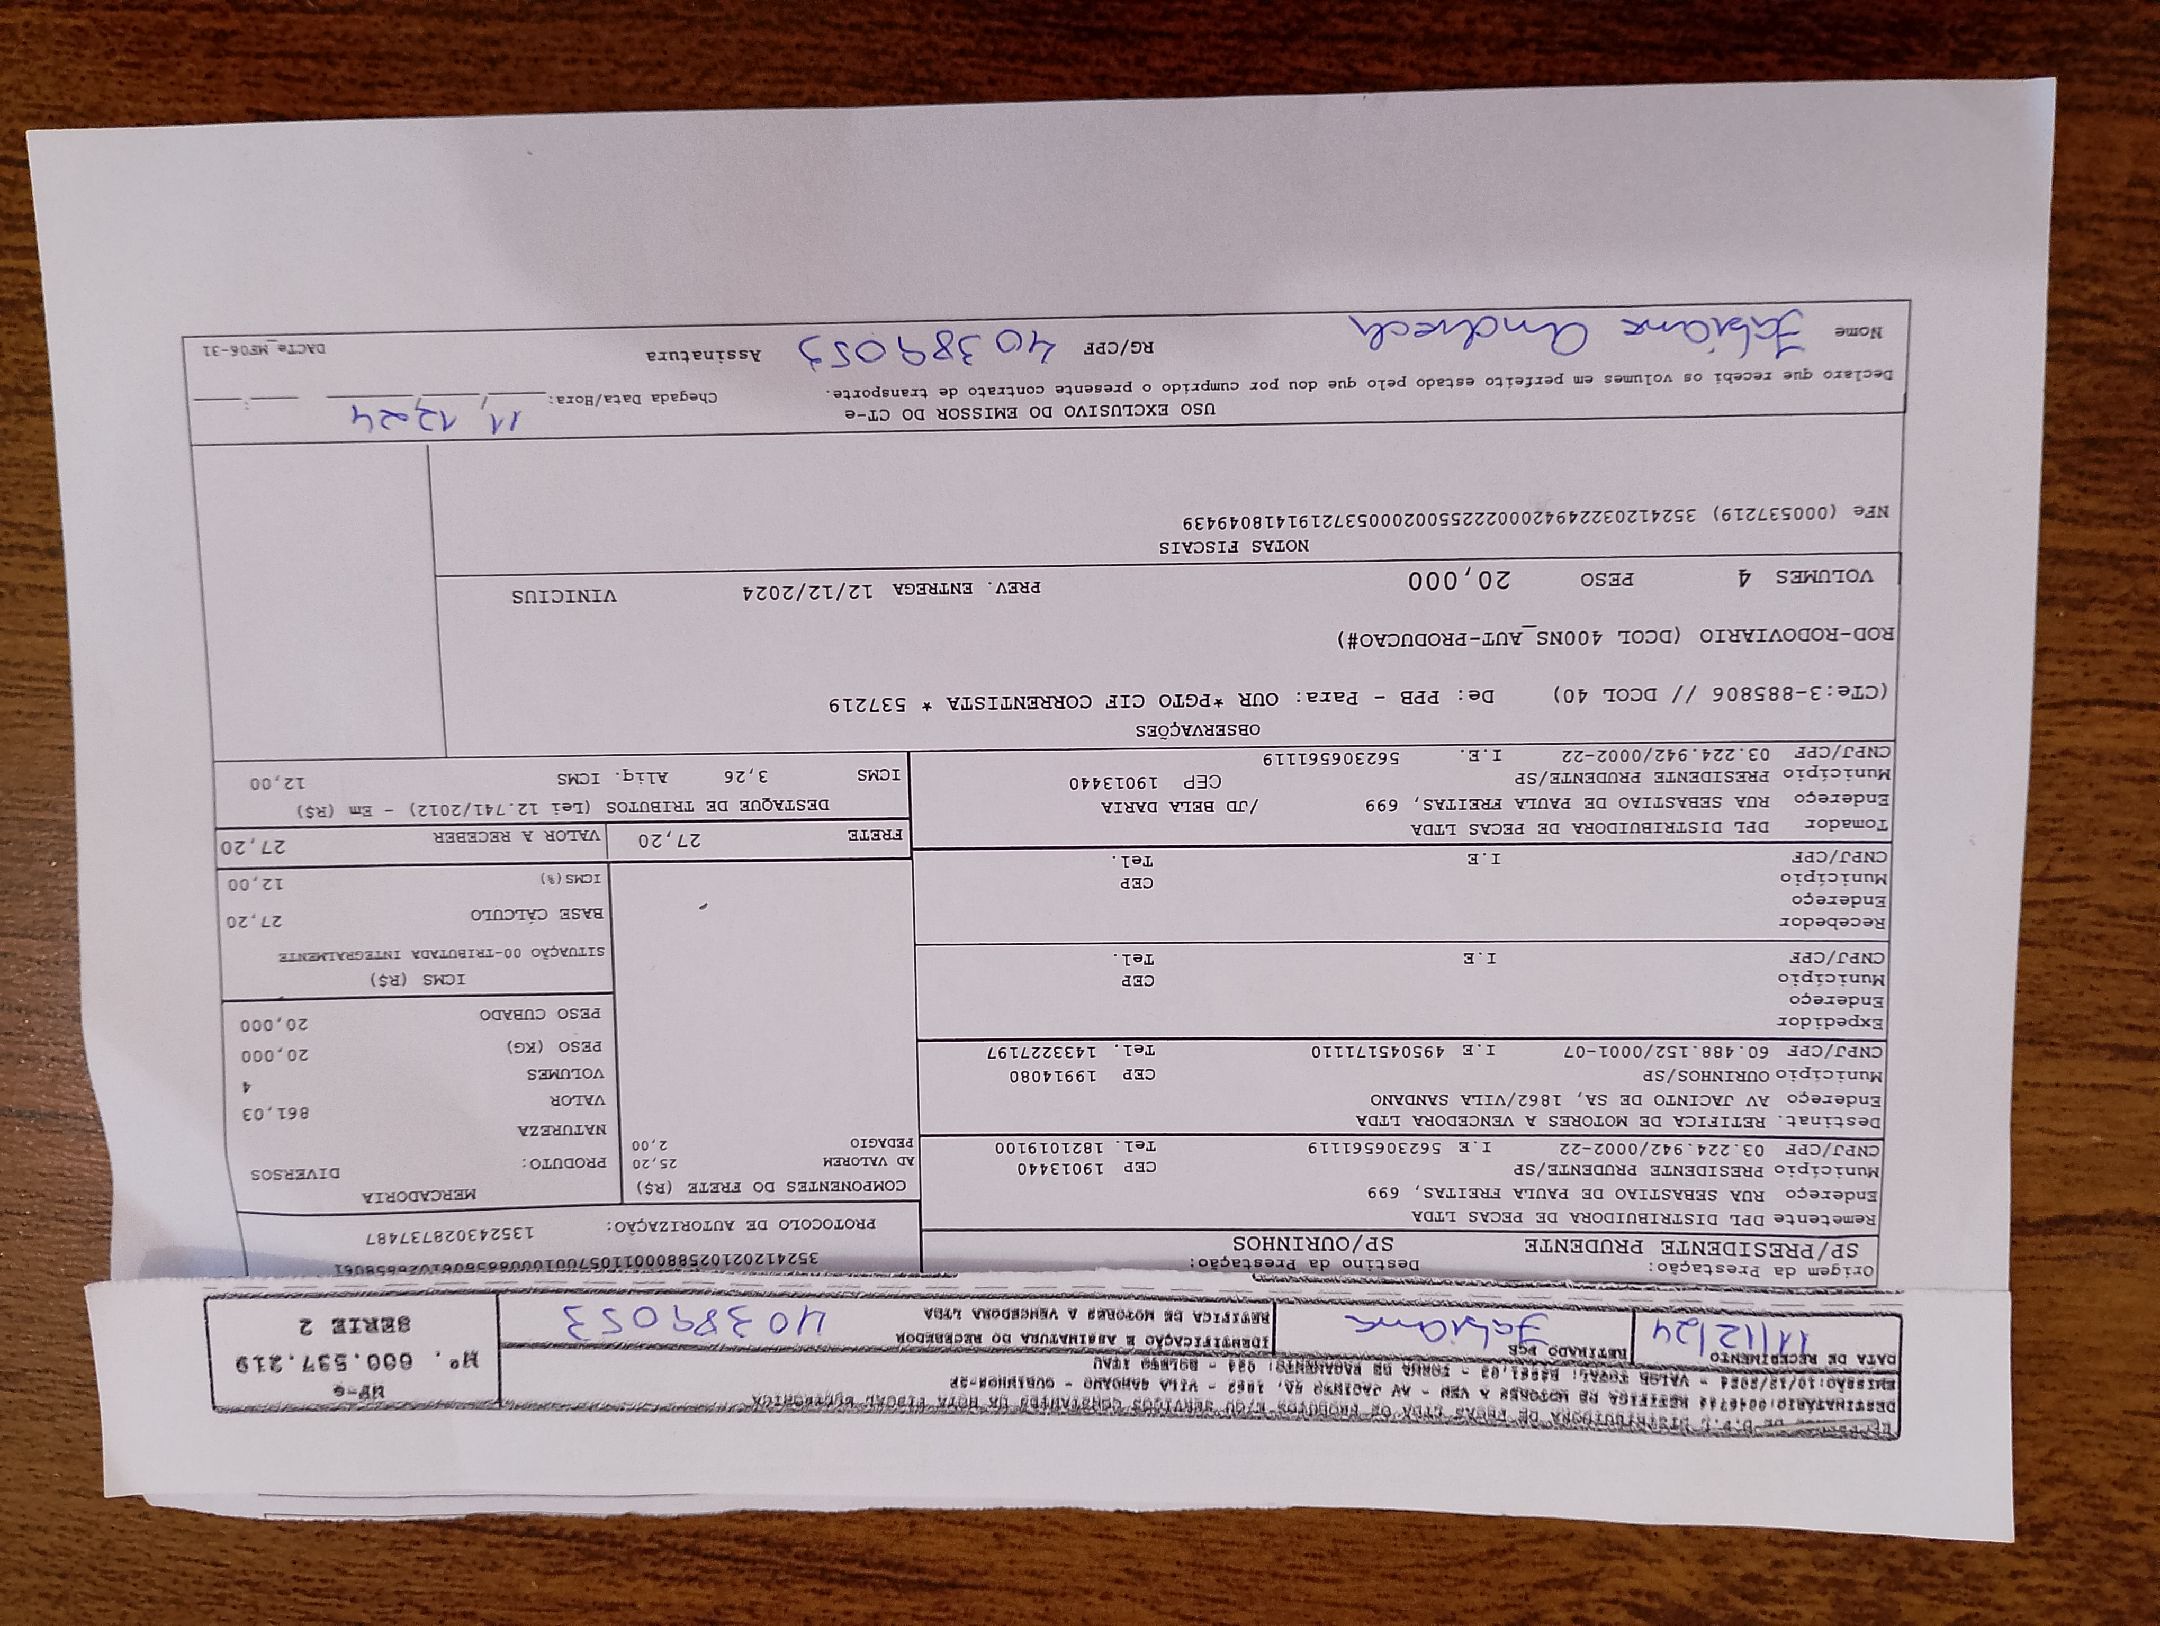 DE D.P.L DISTRIBUIDORA DE PECAS LTDA OS PRODUTOS E/OU SERVIÇOS CONSTANTES DA NOTA FISCAL ELETRONICA
DESTINATÁRIO: RETIFICA DE MOTORES A VEN - AV JACINTO SA, 1862 - VILA SANDANO - OURINHOS-SP
EMISSÃO:10/12/2024 - VALOR TOTAL: R$861,03 - FORMA DE PAGAMENTO: - BOLETO ITAU
NF-e
Nº. 000.537.219
SERIE 2
DATA DE RECEBIMENTO 11/12/24
RETIRADO POR Fabiana
IDENTIFICAÇÃO E ASSINATURA DO RECEBEDOR
RETIFICA DE MOTORES A VENCEDORA LTDA 40389053
Origem da Prestação: Destino da Prestação:
SP/PRESIDENTE PRUDENTE SP/OURINHOS
PROTOCOLO DE AUTORIZAÇÃO: 135243028737487
Remetente DPL DISTRIBUIDORA DE PECAS LTDA
Endereço RUA SEBASTIAO DE PAULA FREITAS, 699
Município PRESIDENTE PRUDENTE/SP CEP 19013440
CNPJ/CPF 03.224.942/0002-22 I.E 562306561119 Tel. 1821019100
Destinat. RETIFICA DE MOTORES A VENCEDORA LTDA
Endereço AV JACINTO DE SA, 1862/VILA SANDANO
Município OURINHOS/SP CEP 19914080
CNPJ/CPF 60.488.152/0001-07 I.E 495045171110 Tel. 1433227197
Expedidor
Endereço
Município CEP
CNPJ/CPF I.E Tel.
Recebedor
Endereço
Município CEP
CNPJ/CPF I.E Tel.
Tomador DPL DISTRIBUIDORA DE PECAS LTDA
Endereço RUA SEBASTIAO DE PAULA FREITAS, 699 /JD BELA DARIA
Município PRESIDENTE PRUDENTE/SP CEP 19013440
CNPJ/CPF 03.224.942/0002-22 I.E. 562306561119
COMPONENTES DO FRETE (R$)
AD VALOREM 25,20
PEDAGIO 2,00
MERCADORIA
PRODUTO: DIVERSOS
NATUREZA
VALOR 861,03
VOLUMES 4
PESO (KG) 20,000
PESO CUBADO 20,000
ICMS (R$)
SITUAÇÃO 00-TRIBUTADA INTEGRALMENTE
BASE CÁLCULO 27,20
ICMS(%) 12,00
FRETE 27,20 VALOR A RECEBER 27,20
DESTAQUE DE TRIBUTOS (Lei 12.741/2012) - Em (R$)
ICMS 3,26 Aliq. ICMS 12,00
OBSERVAÇÕES
(CTe:3-885806 // DCOL 40) De: PPB - Para: OUR *PGTO CIF CORRENTISTA * 537219
ROD-RODOVIARIO (DCOL 400NS_AUT-PRODUCAO#)
VOLUMES 4 PESO 20,000 PREV. ENTREGA 12/12/2024 VINICIUS
NOTAS FISCAIS
NFe (000537219) 35241203224942000222550020005372191418049439
USO EXCLUSIVO DO EMISSOR DO CT-e
Declaro que recebi os volumes em perfeito estado pelo que dou por cumprido o presente contrato de transporte. Chegada Data/Hora: 11/12/24 :
Nome Fabiana Andrea RG/CPF 40389053 Assinatura DACTe_MF06-31